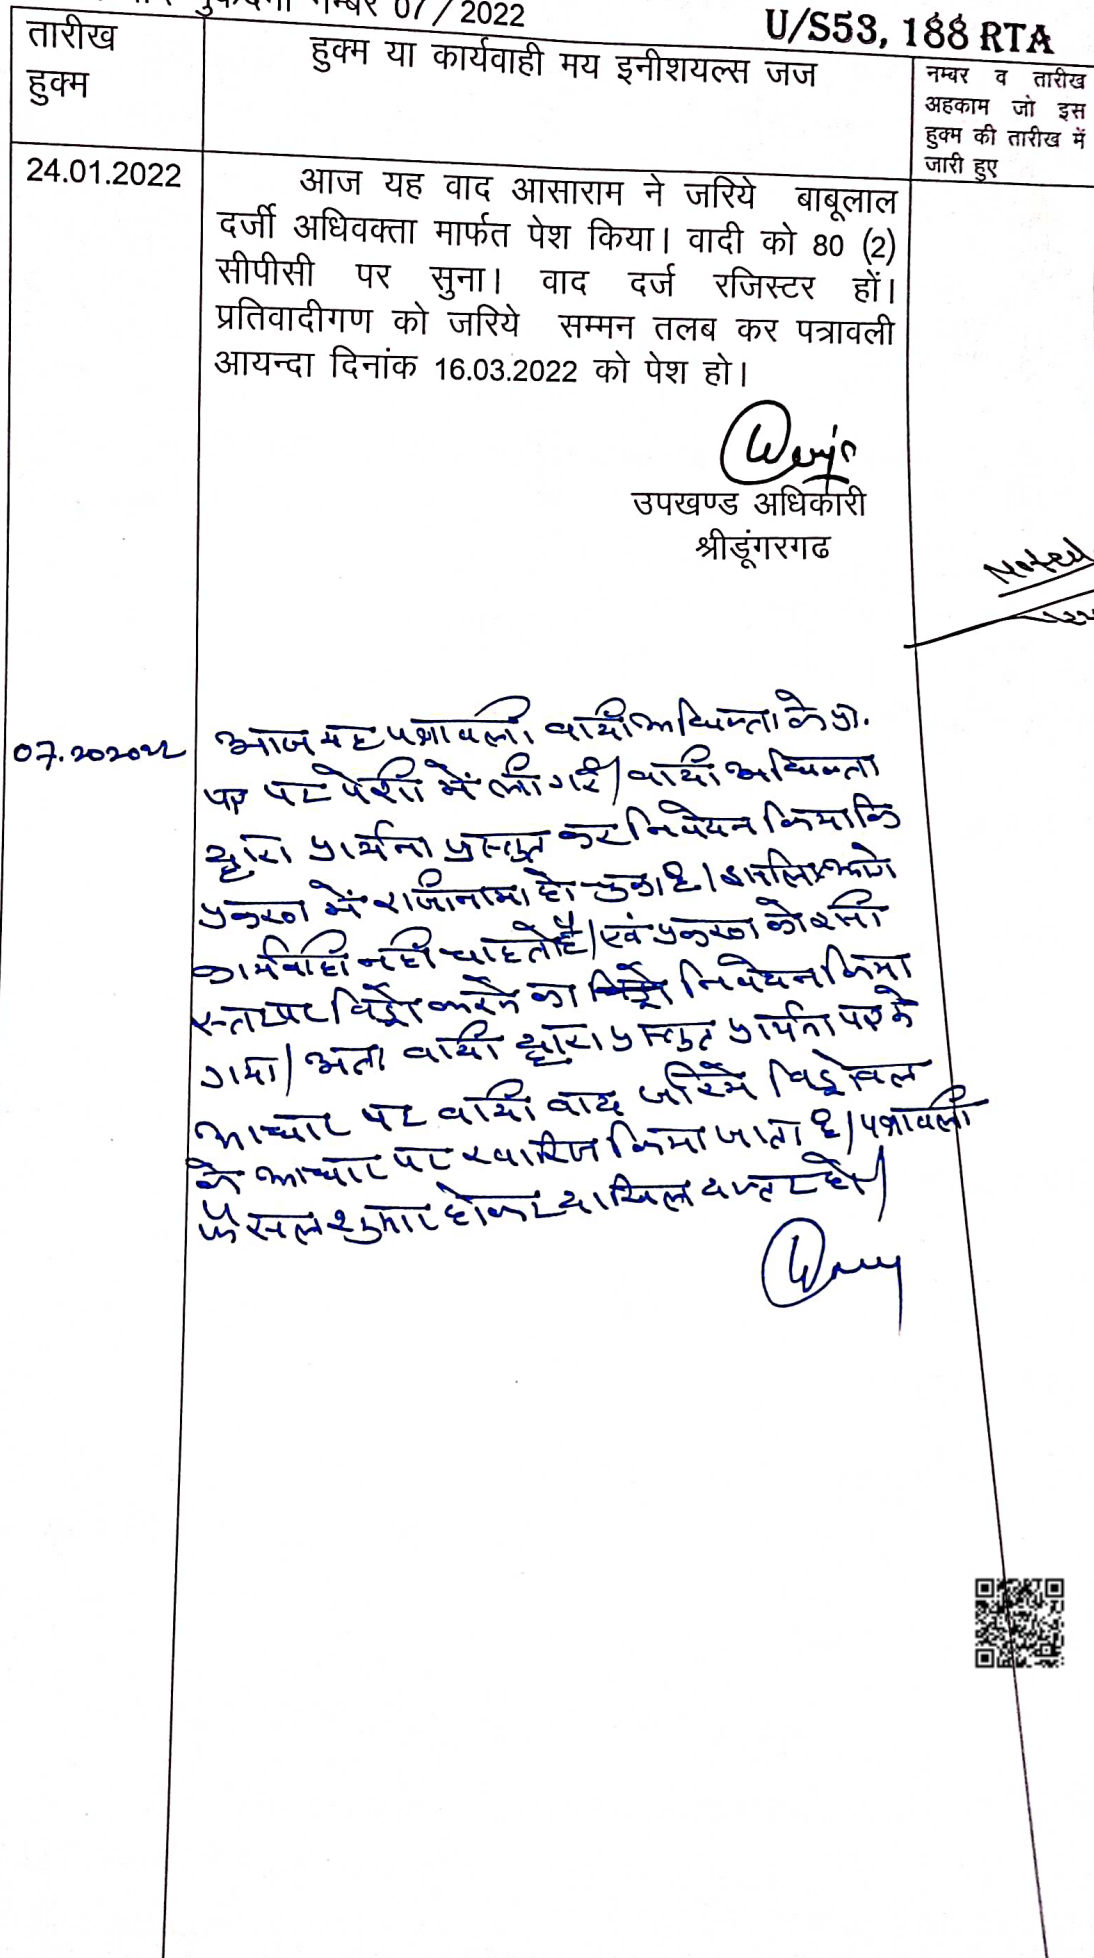 मुकदमा नम्बर 07/2022
U/S53, 188 RTA
तारीख
हुक्म
हुक्म या कार्यवाही मय इनीशयल्स जज
नम्बर व तारीख
अहकाम जो इस
हुक्म की तारीख में
जारी हुए
24.01.2022
आज यह वाद आसाराम ने जरिये बाबूलाल
दर्जी अधिवक्ता मार्फत पेश किया। वादी को 80 (2)
सीपीसी पर सुना। वाद दर्ज रजिस्टर हों।
प्रतिवादीगण को जरिये सम्मन तलब कर पत्रावली
आयन्दा दिनांक 16.03.2022 को पेश हो।
उपखण्ड अधिकारी
श्रीडूंगरगढ
Noted
आज यह पत्रावली वादी अधिवक्ता के प्रा.
पत्र पर पेशी में ली गई। वादी अधिवक्ता
द्वारा प्रार्थना प्रस्तुत कर निवेदन किया कि
प्रकरण में राजीनामा हो चुका है। इसलिए आगे
कार्यवाही नहीं चाहते है। एवं प्रकरण को इसी
स्तर पर विड्रो करने का निवेदन किया
गया। अतः वादी द्वारा प्रस्तुत प्रार्थना पत्र के
आधार पर वादी वाद जरिये विड्रोवल
के आधार पर खारिज किया जाता है। पत्रावली
फैसल शुमार होकर दाखिल दफ्तर हो।